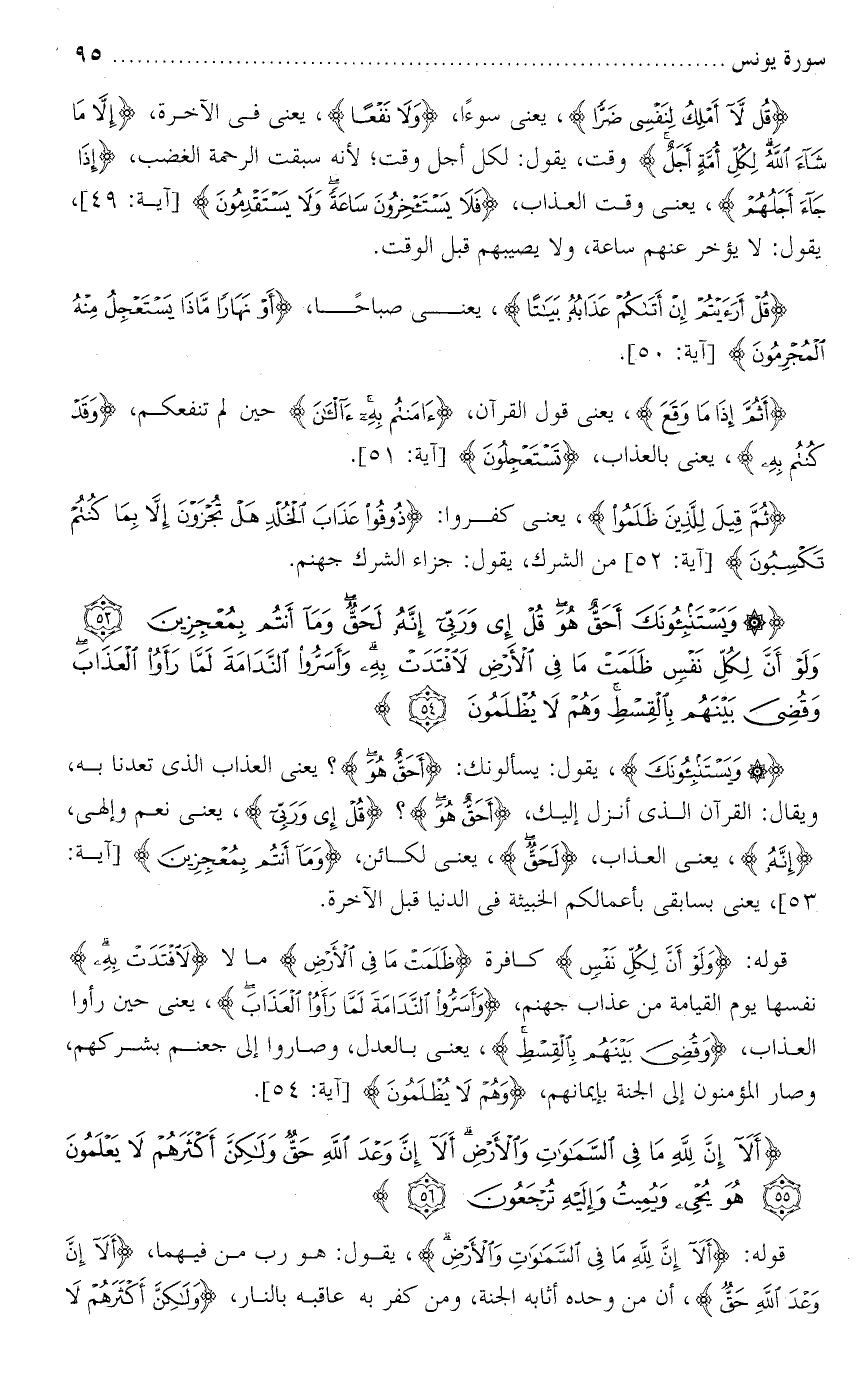 سورة يونس ........................................................................ ٩٥
﴿قُل لَّآ أَمْلِكُ لِنَفْسِى ضَرًّا﴾، يعنى سوءًا، ﴿وَلَا نَفْعًا﴾، يعنى فى الآخرة، ﴿إِلَّا مَا
شَآءَ ٱللَّهُ ۗ لِكُلِّ أُمَّةٍ أَجَلٌ ۚ﴾ وقت، يقول: لكل أجل وقت؛ لأنه سبقت الرحمة الغضب، ﴿إِذَا
جَآءَ أَجَلُهُمْ﴾، يعنى وقت العذاب، ﴿فَلَا يَسْتَـْٔخِرُونَ سَاعَةً ۖ وَلَا يَسْتَقْدِمُونَ﴾ [آية: ٤٩]،
يقول: لا يؤخر عنهم ساعة، ولا يصيبهم قبل الوقت.
﴿قُلْ أَرَءَيْتُمْ إِنْ أَتَىٰكُمْ عَذَابُهُۥ بَيَٰتًا﴾، يعنى صباحًا، ﴿أَوْ نَهَارًا مَّاذَا يَسْتَعْجِلُ مِنْهُ
ٱلْمُجْرِمُونَ﴾ [آية: ٥٠].
﴿أَثُمَّ إِذَا مَا وَقَعَ﴾، يعنى قول القرآن، ﴿ءَامَنتُم بِهِۦٓ ۚ ءَآلْـَٰٔنَ﴾ حين لم تنفعكم، ﴿وَقَدْ
كُنتُم بِهِۦ﴾، يعنى بالعذاب، ﴿تَسْتَعْجِلُونَ﴾ [آية: ٥١].
﴿ثُمَّ قِيلَ لِلَّذِينَ ظَلَمُوا۟﴾، يعنى كفروا: ﴿ذُوقُوا۟ عَذَابَ ٱلْخُلْدِ هَلْ تُجْزَوْنَ إِلَّا بِمَا كُنتُمْ
تَكْسِبُونَ﴾ [آية: ٥٢] من الشرك، يقول: جزاء الشرك جهنم.
﴿۞ وَيَسْتَنۢبِـُٔونَكَ أَحَقٌّ هُوَ ۖ قُلْ إِى وَرَبِّىٓ إِنَّهُۥ لَحَقٌّ ۖ وَمَآ أَنتُم بِمُعْجِزِينَ ٥٣
وَلَوْ أَنَّ لِكُلِّ نَفْسٍ ظَلَمَتْ مَا فِى ٱلْأَرْضِ لَٱفْتَدَتْ بِهِۦ ۗ وَأَسَرُّوا۟ ٱلنَّدَامَةَ لَمَّا رَأَوُا۟ ٱلْعَذَابَ ۖ
وَقُضِىَ بَيْنَهُم بِٱلْقِسْطِ ۚ وَهُمْ لَا يُظْلَمُونَ ٥٤ ﴾
﴿۞ وَيَسْتَنۢبِـُٔونَكَ﴾، يقول: يسألونك: ﴿أَحَقٌّ هُوَ ۖ﴾؟ يعنى العذاب الذى تعدنا به،
ويقال: القرآن الذى أنزل إليك، ﴿أَحَقٌّ هُوَ ۖ﴾؟ ﴿قُلْ إِى وَرَبِّىٓ﴾، يعنى نعم وإلهى،
﴿إِنَّهُۥ﴾، يعنى العذاب، ﴿لَحَقٌّ ۖ﴾، يعنى لكائن، ﴿وَمَآ أَنتُم بِمُعْجِزِينَ﴾ [آية:
٥٣]، يعنى بسابقى بأعمالكم الخبيثة فى الدنيا قبل الآخرة.
قوله: ﴿وَلَوْ أَنَّ لِكُلِّ نَفْسٍ﴾ كافرة ﴿ظَلَمَتْ مَا فِى ٱلْأَرْضِ﴾ ما لا ﴿لَٱفْتَدَتْ بِهِۦ ۗ﴾
نفسها يوم القيامة من عذاب جهنم، ﴿وَأَسَرُّوا۟ ٱلنَّدَامَةَ لَمَّا رَأَوُا۟ ٱلْعَذَابَ ۖ﴾، يعنى حين رأوا
العذاب، ﴿وَقُضِىَ بَيْنَهُم بِٱلْقِسْطِ ۚ﴾، يعنى بالعدل، وصاروا إلى جعنم بشركهم،
وصار المؤمنون إلى الجنة بإيمانهم، ﴿وَهُمْ لَا يُظْلَمُونَ﴾ [آية: ٥٤].
﴿أَلَآ إِنَّ لِلَّهِ مَا فِى ٱلسَّمَٰوَٰتِ وَٱلْأَرْضِ ۗ أَلَآ إِنَّ وَعْدَ ٱللَّهِ حَقٌّ وَلَٰكِنَّ أَكْثَرَهُمْ لَا يَعْلَمُونَ
٥٥ هُوَ يُحْىِۦ وَيُمِيتُ وَإِلَيْهِ تُرْجَعُونَ ٥٦ ﴾
قوله: ﴿أَلَآ إِنَّ لِلَّهِ مَا فِى ٱلسَّمَٰوَٰتِ وَٱلْأَرْضِ ۗ﴾، يقول: هو رب من فيهما، ﴿أَلَآ إِنَّ
وَعْدَ ٱللَّهِ حَقٌّ﴾، أن من وحده أثابه الجنة، ومن كفر به عاقبه بالنار، ﴿وَلَٰكِنَّ أَكْثَرَهُمْ لَا